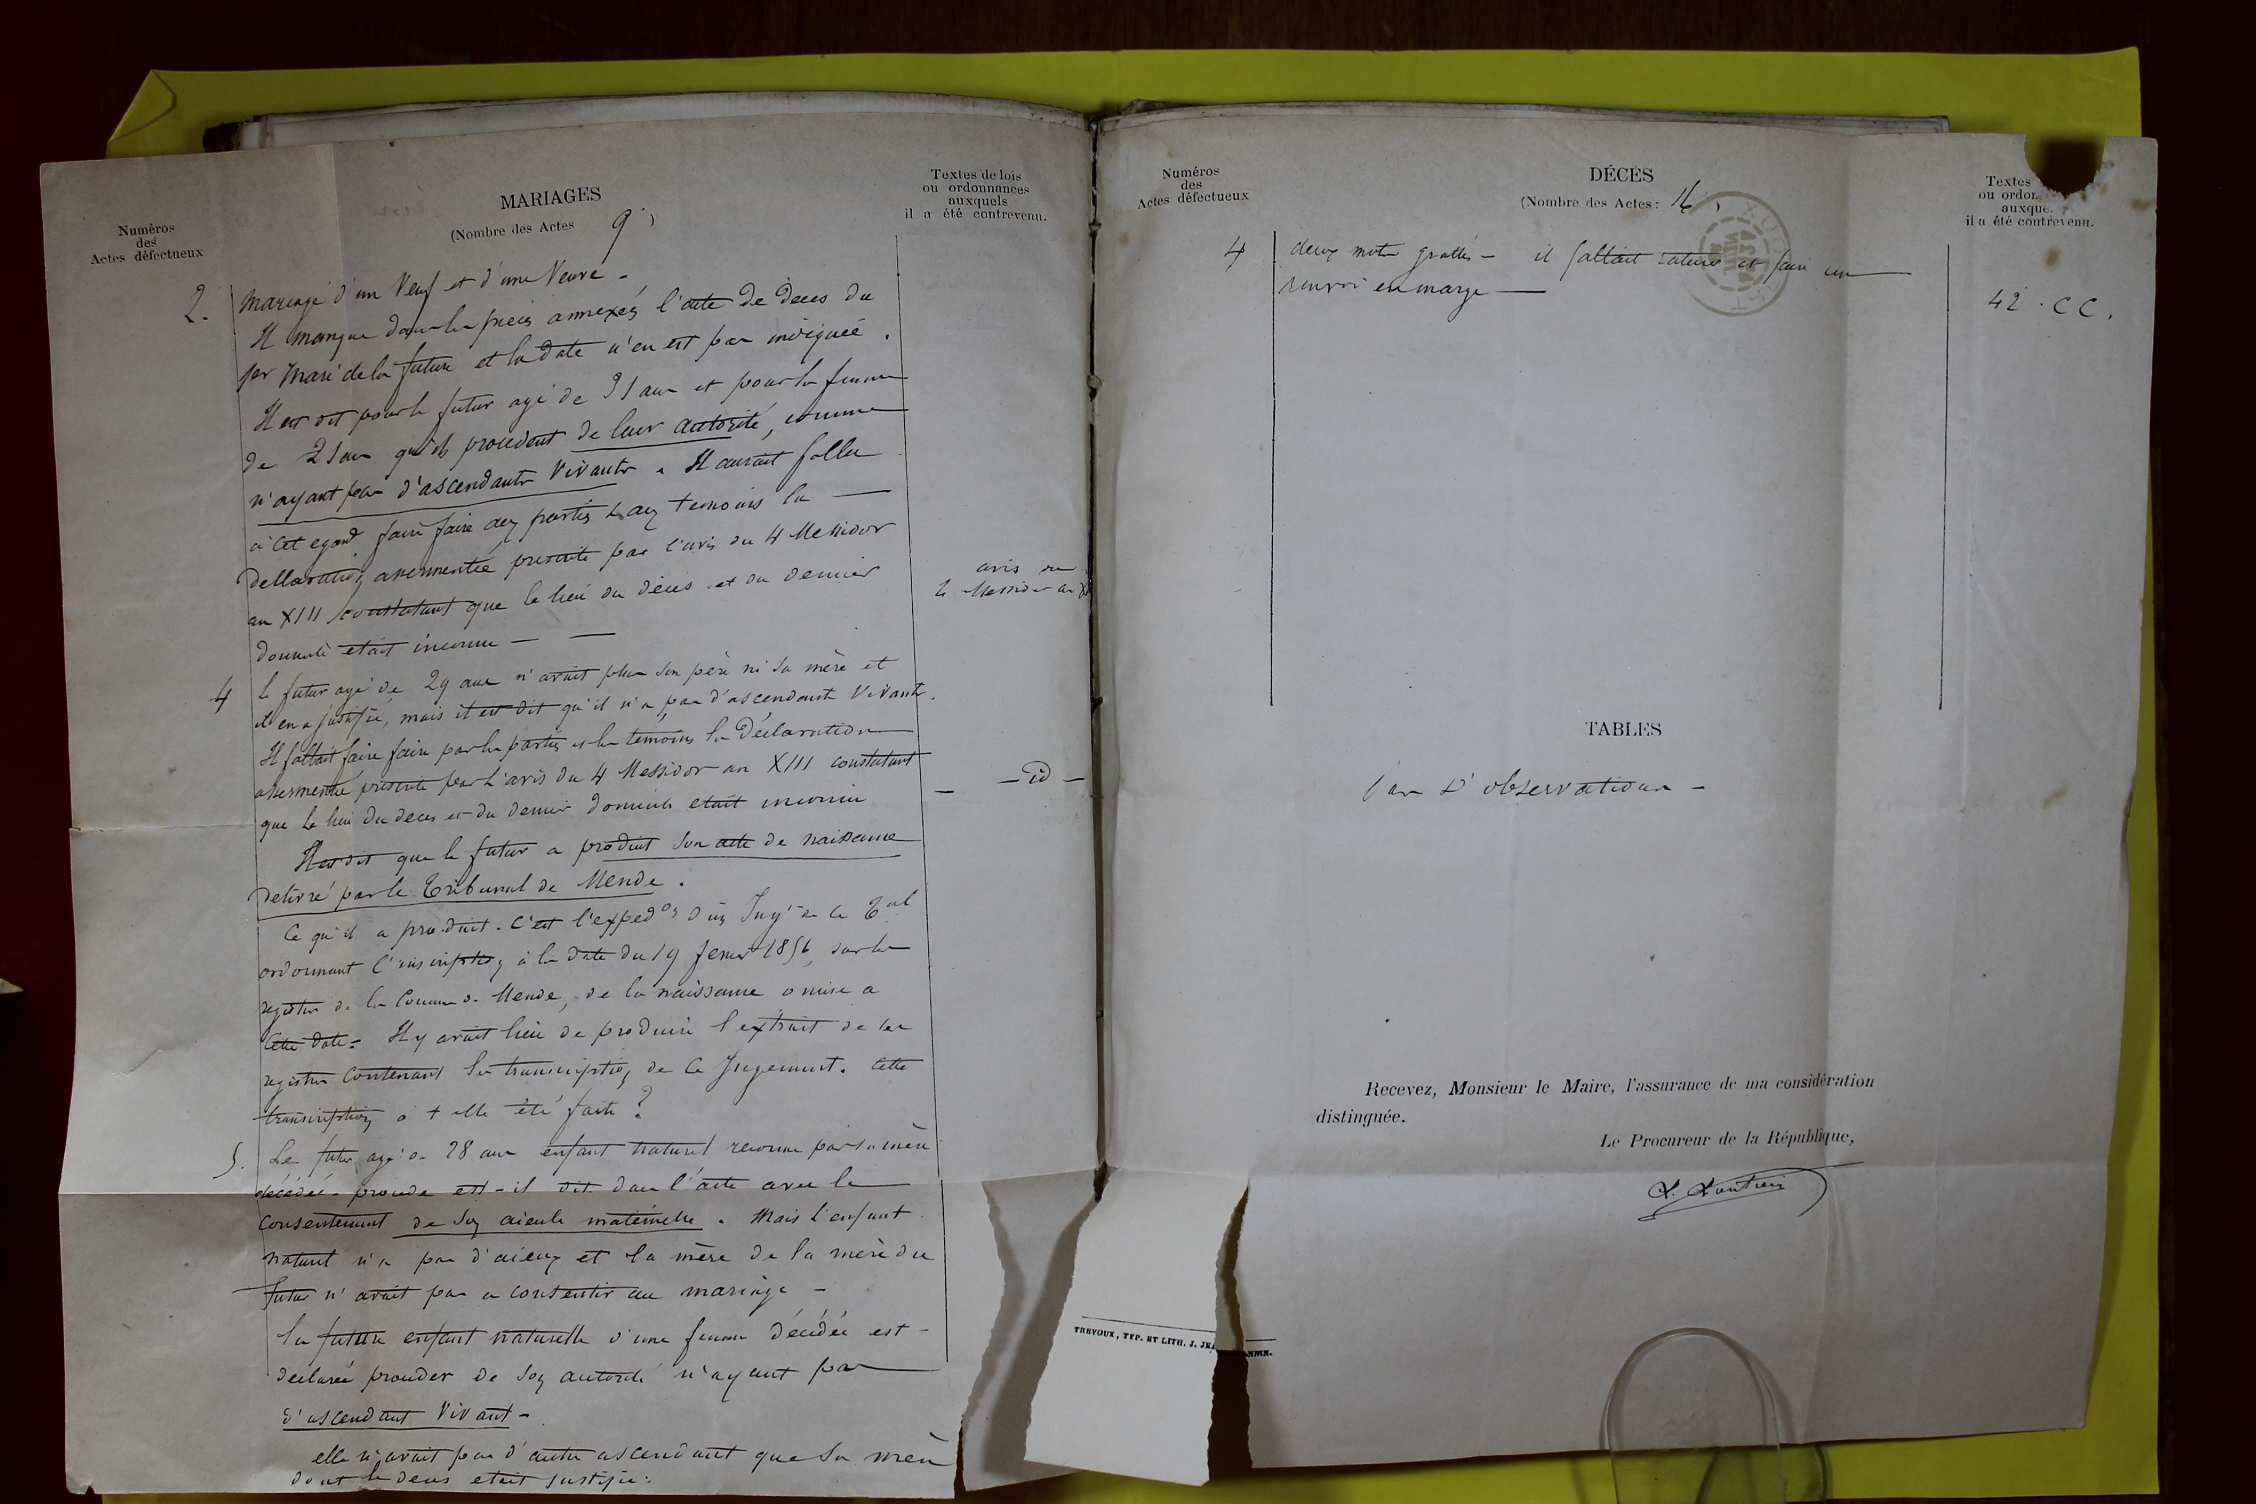 MARIAGES
(Nombre des Actes 9)
Numéros
des
Actes défectueux
Textes de lois
ou ordonnances
auxquels
il a été contrevenu.
2. Mariage d'un Veuf et d'une Veuve -
Il manque dans les pièces annexés l'acte de deces du
1er Mari de la future et la date n'en est pas indiquée.
Il est dit pour le futur agé de 31 ans et pour la femme
de 21 ans qu'ils procedent de leur autorité, comme
n'ayant pas d'ascendants Vivants. Il aurait fallu
à cet egard faire faire aux parties & aux temoins la
declaration assermentée prescrite par l'avis du 4 Messidor
an XIII constatant que le lieu du décès et du dernier
domicile était inconnu -
avis du
4 Messidor an XI
4 le futur agé de 29 ans n'avait plus son père ni sa mère et
il en a justifié, mais il est dit qu'il n'a pas d'ascendants Vivants.
Il fallait faire faire par les parties et les témoins la Déclaration
assermentée prescrite par l'avis du 4 Messidor an XIII constatant
que le lieu du deces et du dernier domicile etait inconnu
- id -
Il est dit que le futur a produit son acte de naissance
delivré par le Tribunal de Mende.
Ce qu'il a produit. C'est l'expedon d'un Jugt de ce Tal
ordonnant l'inscription à la date du 19 fevrier 1856, sur les
registres de la Commune de Mende, de la naissance omise a
cette date. Il y avait lieu de produire l'extrait de ces
registres contenant la transcription de ce Jugement. Cette
transcription a t elle été faite?
5. Le futur agé de 28 ans enfant naturel reconnu par sa mère
décédée procede est-il dit dans l'acte avec le
consentement de son aieule maternelle. Mais l'enfant
naturel n'a pas d'aieux et la mère de la mère du
futur n'avait pas a consentir au mariage -
la future enfant naturelle d'une femme décédée est
declarée proceder de son autorité n'ayant pas
d'ascendant Vivant -
elle n'avait pas d'autre ascendant que sa mère
dont le deces etait justifié.
Numéros
des
Actes défectueux
DÉCÈS
(Nombre des Actes: 16
Textes
ou ordon
auxque
il a été contrevenu.
4 deux mots grattés - il fallait raturer et faire un
renvoi en marge
42 . C C.
TABLES
Pas d'observations -
Recevez, Monsieur le Maire, l'assurance de ma considération
distinguée.
Le Procureur de la République,
TREVOUX, TYP. ET LITH. J. JEA